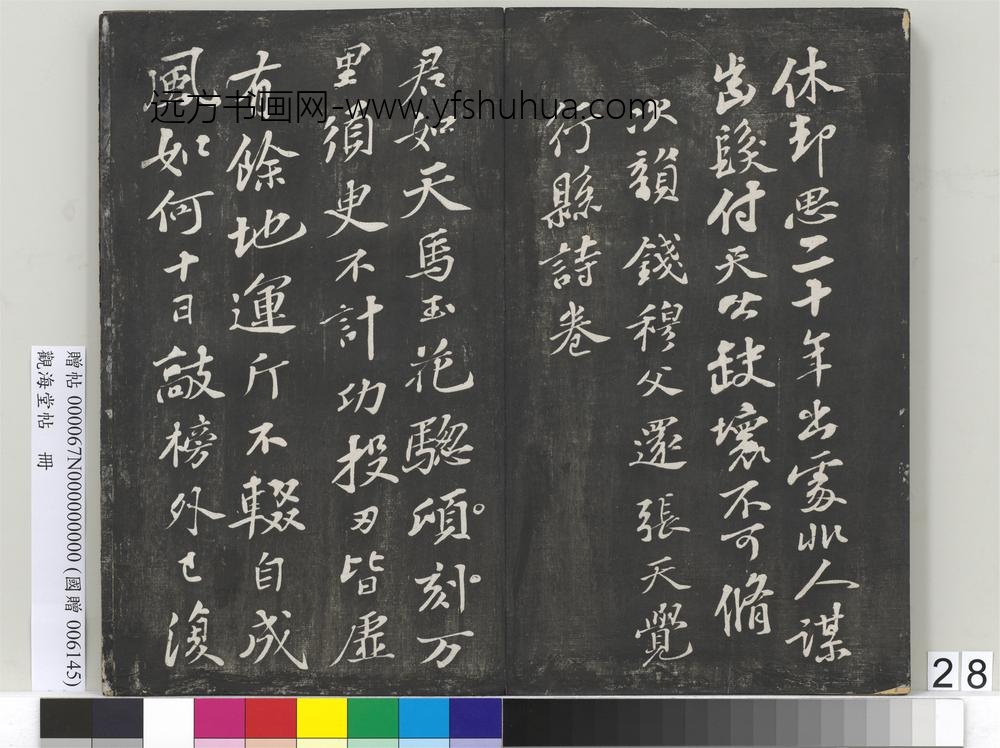 休却思二十年出處非人謀
齒髮付天公缺壞不可脩
次韻錢穆父還張天覺
行縣詩卷
君如天馬玉花驄頃刻万
里須史不計功投刃皆虛
有餘地運斤不輟自成
風如何十日敲榜外已復
远方书画网-www.yfshuhua.com
贈帖 000067N000000000 (國贈 006145)
觀海堂帖 冊
28